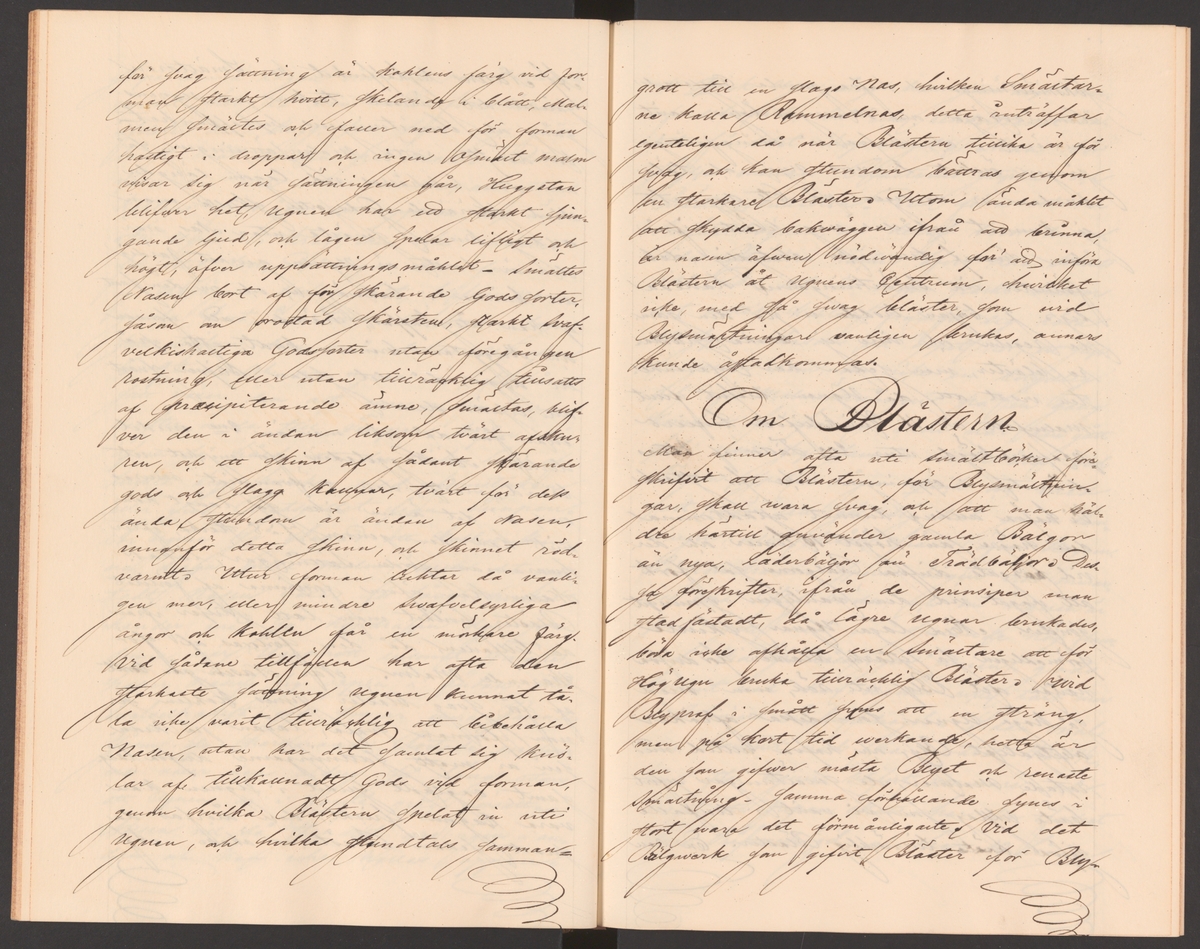 för svag sättning är kohlens färg vid for-
man starkt hvitt, skelande i blått, Mal-
men smältes och faller ned för forman
hastigt i droppar och ingen osmält malm
visar sig när sättningen går, Huggstan
blifwer het, ugnen har ett starkt sjun-
gande ljud, och lågen spelar lifligt och
högt, öfver uppsättningsmåhlet – Smältes
Nasen bort af för skärande Gods sorter,
såsom an orostad skärsten, starkt svaf-
velkishaltiga Godssorter utan föregången
rostning, eller utan tillräcklig tillsatts
af præcipiterande ämne, smältas, blif-
ver den i ändan liksom tvärt afsku-
ren, och ett skinn af sådant skärande
gods och slagg kannar, tvärt för dess
ända, stundom är ändan af Nasen,
innanför detta skinn, och skinnet röd-
varmt. Utur forman luktar då vanli-
gen mer, eller mindre swafvelsyrliga
ångor och kohlen får en mörkare färg.
Vid sådane tillfällen har ofta den
starkaste sättning ugnen kunnat tå-
la icke varit tillräcklig att bibehålla
Nasen, utan har det samlat sig knö-
lar af tillkallnadt Gods vid forman,
genom hvilka Blästern spelat in uti
Ugnen, och hvilka stundtals samman=
grott till en slags Nas, hvilken Smältar-
ne kalla Rammelnas, detta inträffar
egenteligen då när Blästern tillika är för
svag, och kan stundom bättras genom
en starkare Bläster. Utom ända måhlet
att skydda bakwäggen ifrån att brinna,
är nasen äfwen nödwändig för att införa
Blästern åt Ugnens Centrum, hvilket
icke, med så swag bläster, som vid
Blysmältningar vanligen brukas, annars
kunde åstadkommas.
Om Blästern
Man finner ofta uti smältböcker före-
skrifvit att Blästern, för Blysmältnin-
gar, skall wara svag, och att man häl-
dre härtill använder gamla Bälgor
än nya, Läderbäljor än Trädbäljor. Des-
sa föreskrifter, ifrån de prinsiper man
stadfästadt, då lägre ugnar brukades,
böra icke afhålla en Smältare att för
Hög Ugn bruka tillräcklig Bläster. Vid
Blyprof i smått fins att en sträng,
men på kort tid werkande, hetta är
den som gifwer mästa Blyet och renaste
Smältning – samma förhållande synes i
stort wara det förmånligaste. Vid det
Bälgwerk som gifvit Bläster för Bly-